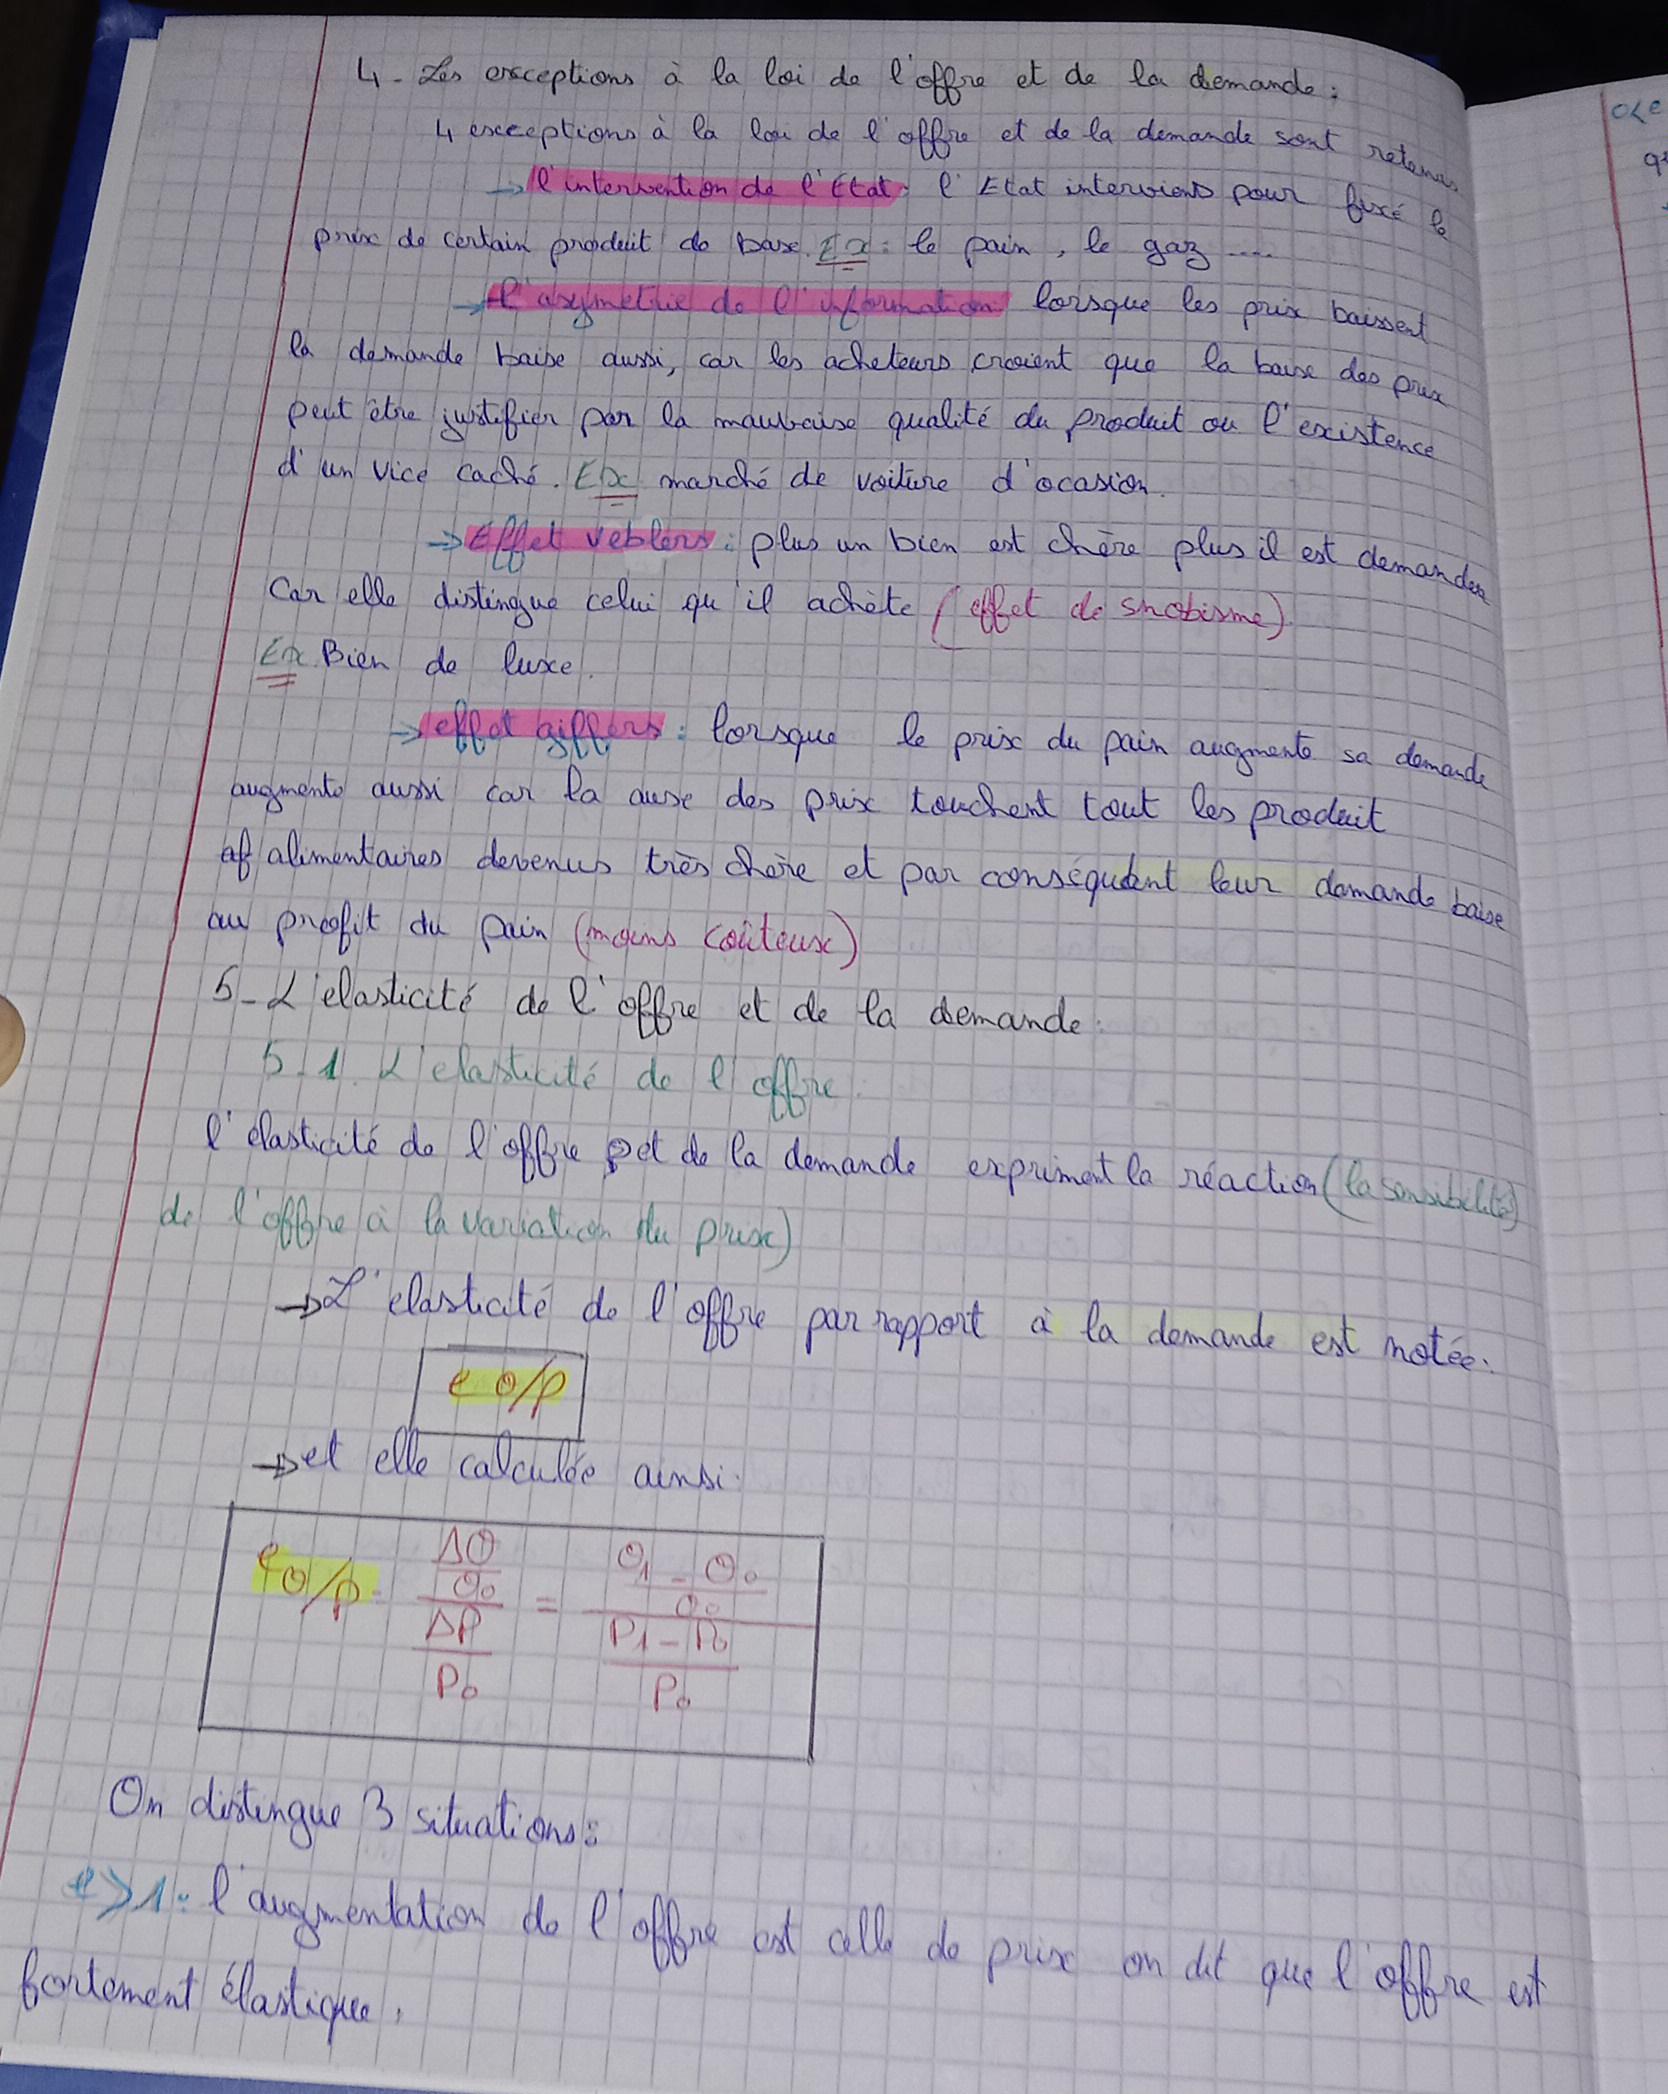 4 - Les exceptions à la loi de l'offre et de la demande :
4 exceptions à la loi de l'offre et de la demande sont retenus
→ l'intervention de l'Etat : l'Etat interviens pour fixé le
prix de certain produit de base. Ex : le pain, le gaz ....
→ l'asymetrie de l'information lorsque les prix baissent
la demande baise aussi, car les acheteurs croient que la baise des prix
peut être justifier par la mauvaise qualité du produit ou l'existence
d'un vice caché. Ex marché de voiture d'ocasion.
→ Effet veblens : plus un bien est chère plus il est demander
Car elle distingue celui qu'il achète (effet de snobisme)
Ex Bien de luxe.
→ effet giffens : lorsque le prix du pain augmente sa demande
augmente aussi car la ause des prix touchent tout les produit
alimentaires devenus très chère et par conséquent leur demande baise
au profit du pain (moins coûteux)
5 - L'elasticité de l'offre et de la demande.
5.1. L'elasticité de l'offre.
l'élasticité de l'offre et de la demande expriment la réaction (la sensibilité)
de l'offre à la variation du prix)
→ L'elasticité de l'offre par rapport à la demande est notée.
e O/p
→ et elle calculée ainsi.
e O/p = ΔO/O₀ / ΔP/P₀ = O₁ - O₀/O₀ / P₁ - P₀/P₀
On distingue 3 situations :
e > 1 : l'augmentation de l'offre est celle de prix on dit que l'offre est
fortement élastique.